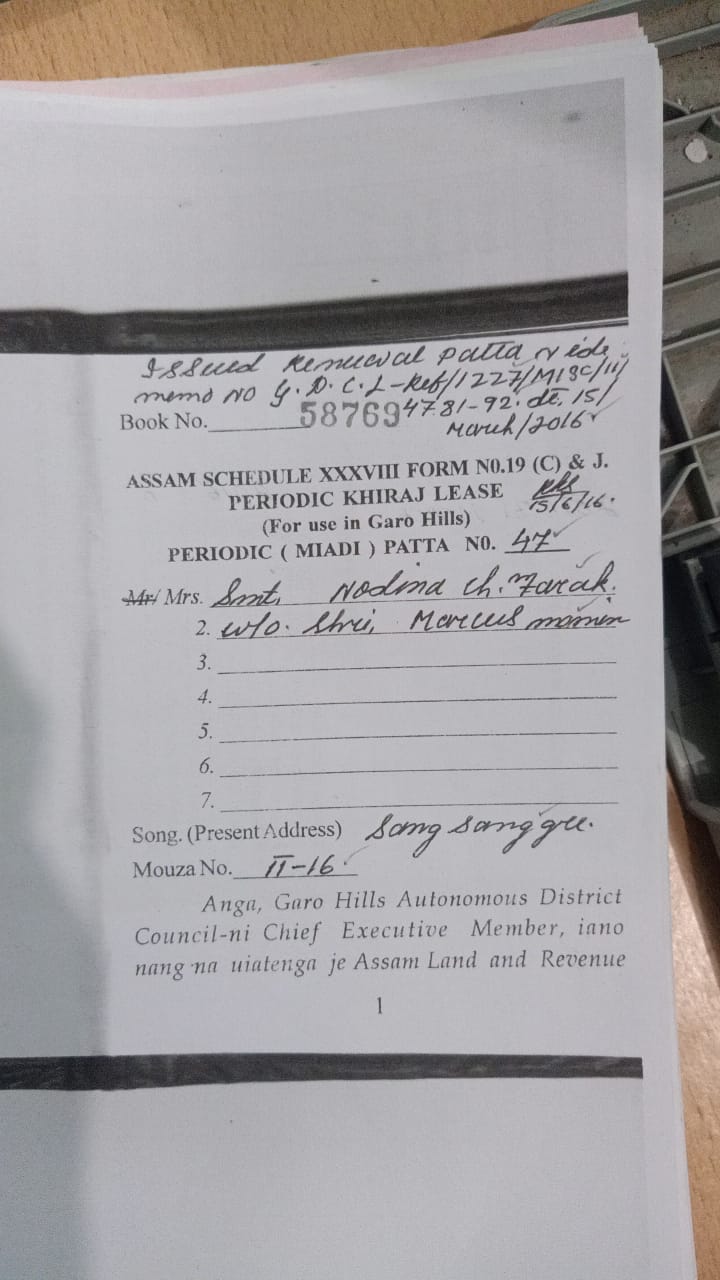 Issued Renewal patta vide
memo NO G.D.C.L-Reb/1227/MISC/11/
4781-92. dt. 15/
March/2016
Book No. 58769
ASSAM SCHEDULE XXXVIII FORM N0.19 (C) & J.
PERIODIC KHIRAJ LEASE
15/6/16.
(For use in Garo Hills)
PERIODIC ( MIADI ) PATTA N0. 47
Mr/ Mrs. Smt. Nodina Ch. Marak.
2. w/o. Shri, Marcus momin
3.
4.
5.
6.
7.
Song. (Present Address) Song sang gre.
Mouza No. II-16
Anga, Garo Hills Autonomous District
Council-ni Chief Executive Member, iano
nang na uiatenga je Assam Land and Revenue
1